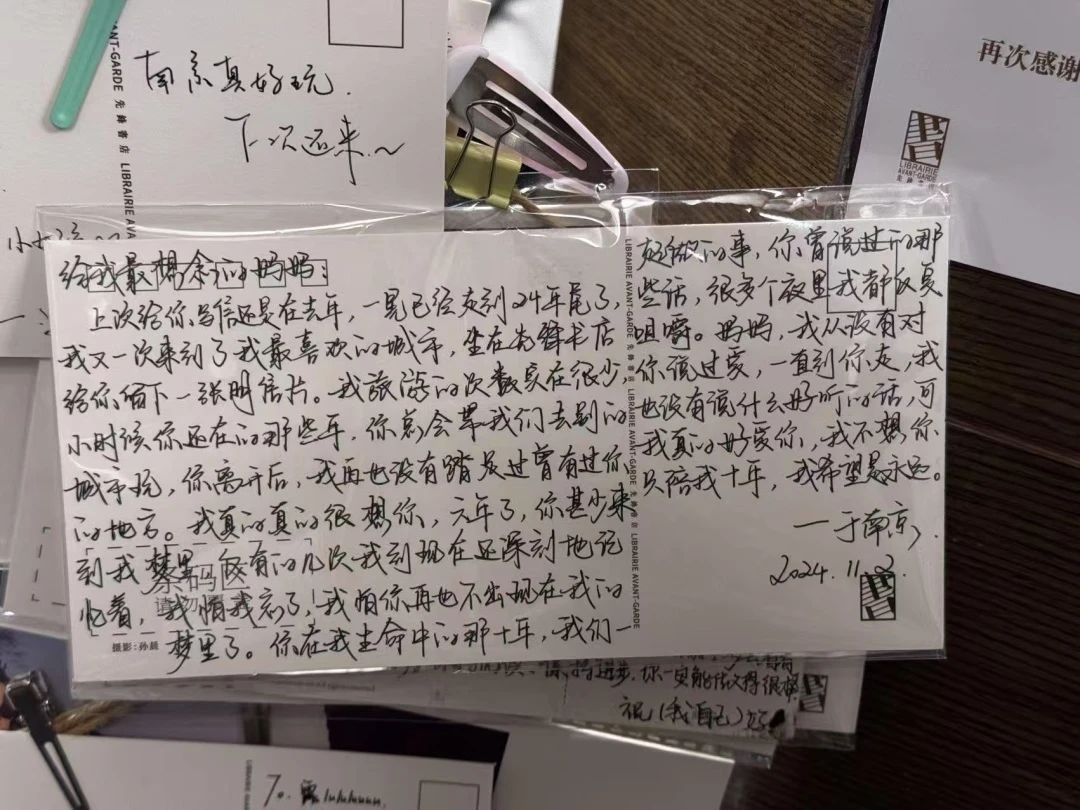 南京真好玩.
下次还来~
ANT-GARDE 先锋書店 LIBRAIRIE AVA
再次感谢
書
LIBRAIRIE
AVANT-GARDE
给我最想念的妈妈:
上次给你写信还是在去年,一晃已经来到24年尾了,
我又一次来到了我最喜欢的城市,坐在先锋书店
给你留下一张明信片。我旅游的次数实在很少,
小时候你还在的那些年,你总会带我们去别的
城市玩,你离开后,我再也没有踏足过曾有过你
的地方。我真的真的很想你,六年了,你甚少来
到我梦里,仅有的几次我到现在还深刻地记
忆着,我怕我忘了!我怕你再也不出现在我的
梦里了。你在我生命中的那十年,我们一
摄影:孙晨
LIBRAIRIE AVANT-GARDE 先锋書店 LIBRAIRIE AVANT-GARDE 先锋書店 LIBRAIRIE AVANT-GARDE
起做的事,你曾说过的那
些话,很多个夜里我都反复
咀嚼。妈妈,我从没有对
你说过爱,一直到你走,我
也没有说什么好听的话,可
我真的好爱你,我不想你
只陪我十年,我希望是永远。
——于南京
2024.11.2.
書
祝(我自己)好
LIBRAIRIE